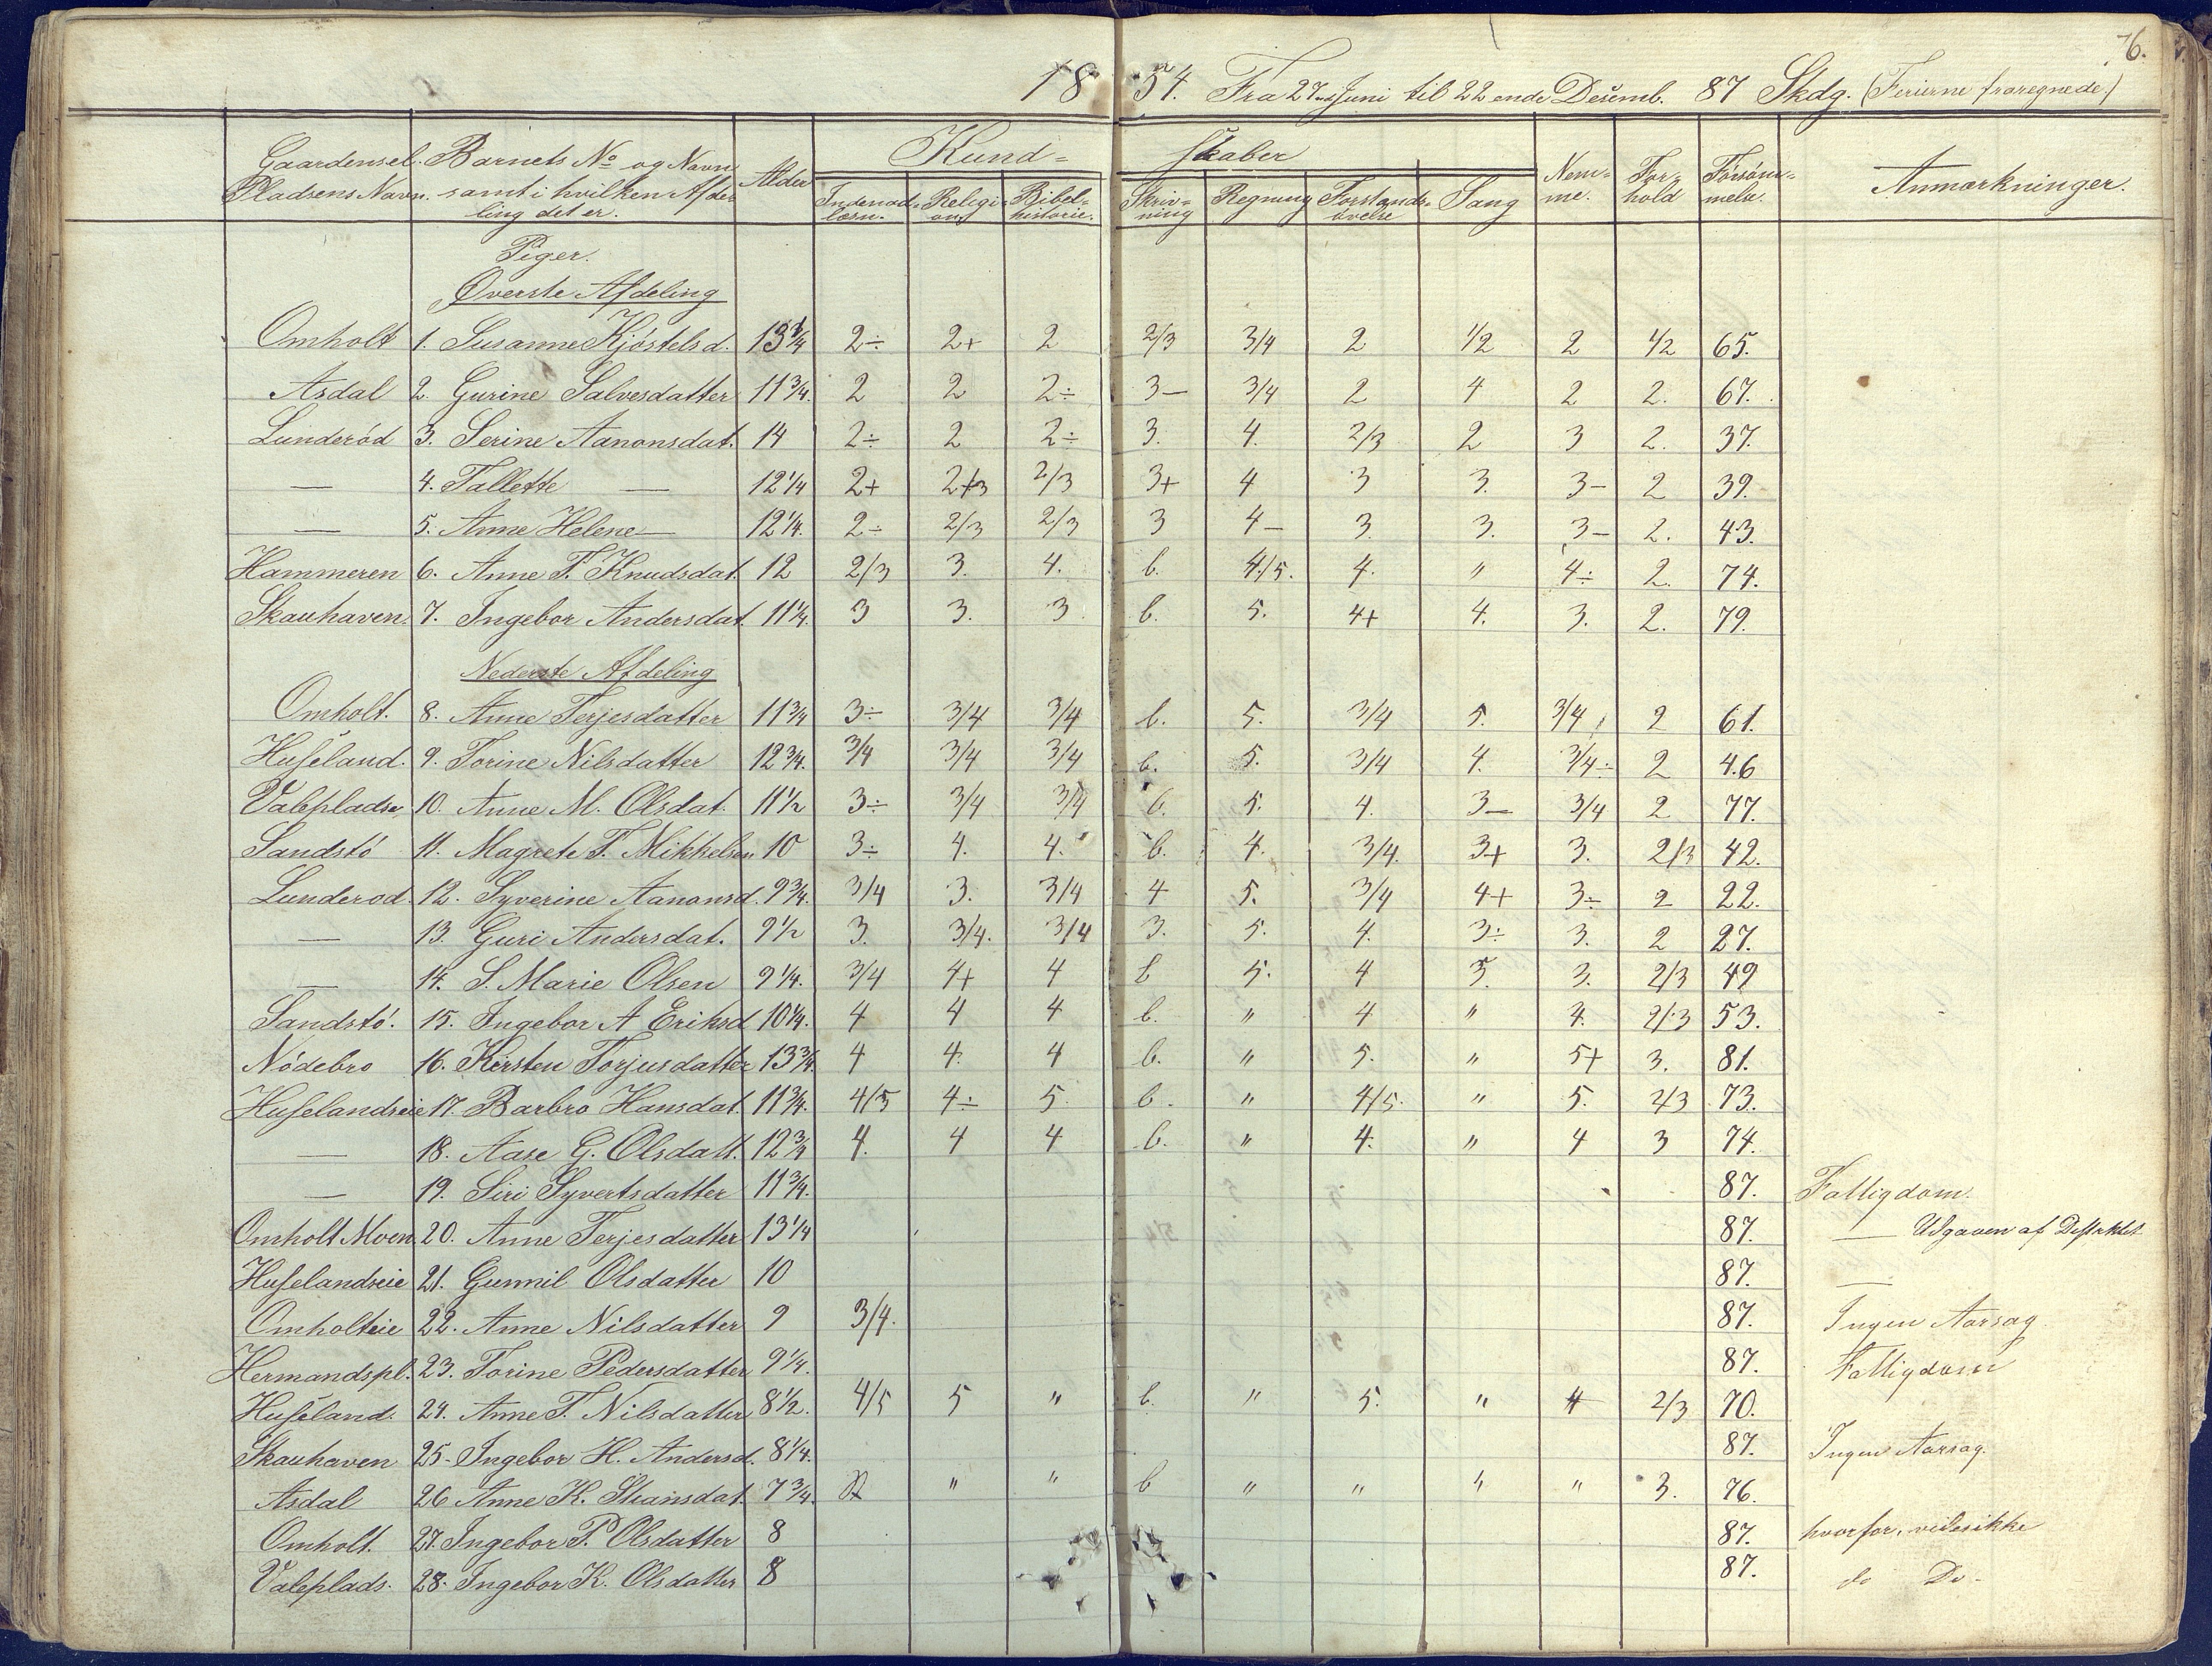 76.
1854. Fra 27de Juni til 22 ende Desemb. 87 Skdg. (Ferierne fraregnede)
Gaardens el. Pladsens Navn. | Barnets No og Navn samt i hvilken Afdeling det er. | Alder | Kund= skaber | Nem= me. | For= hold | Forsöm= melse. | Anmærkninger.
Indenad= læsn. | Religi= on | Bibel= historie. | Skriv= ning | Regning | Forstands= övelse | Sang
Piger.
Överste Afdeling
Omholt 1. Susanne Kjöstelsd. 13 3/4 2÷ 2+ 2 2/3 3/4 2 1/2 2 1/2 65.
Asdal 2. Gurine Salvesdatter 11 3/4. 2 2 2÷ 3— 3/4 2 4 2 2. 67.
Lunderöd 3. Serine Aanonsdat. 14 2÷ 2 2÷ 3. 4. 2/3 2 3 2. 37.
— 4. Tallette — 12 1/4 2+ 2/3 2/3 3+ 4 3 3. 3- 2 39.
— 5. Anne Helene — 12 1/4. 2÷ 2/3 2/3 3 4- 3. 3. 3- 2. 43.
Hammeren 6. Anne T. Knudsdat. 12 2/3 3. 4. b. 4/5. 4. " 4÷ 2. 74.
Skauhaven. 7. Ingebor Andersdat. 11 1/4. 3 3. 3 b. 5. 4+ 4. 3. 2. 79.
Nederste Afdeling
Omholt. 8. Anne Terjesdatter 11 3/4 3÷ 3/4 3/4 b. 5. 3/4 5. 3/4 2 61.
Huseland. 9. Torine Nilsdatter 12 3/4. 3/4 3/4 3/4 b. 5. 3/4 4. 3/4÷ 2 46
Valeplads 10. Anne M. Olsdat. 11 1/2 3÷ 3/4 3/4 b. 5. 4. 3— 3/4 2 77.
Sandstö 11. Magrete T. Mikkelsen 10 3÷ 4. 4. b. 4. 3/4. 3+ 3. 2/3 42.
Lunderod. 12. Syverine Aanonsd. 9 3/4. 3/4 3. 3/4 4 5. 3/4 4+ 3÷ 2 22.
— 13. Guri Andersdat. 9 1/2 3. 3/4. 3/4 3. 5. 4. 3÷ 3. 2 27.
— 14. S. Marie Olsen 9 1/4. 3/4 4+ 4 b 5. 4 5. 3. 2/3 49
Sandstö. 15. Ingebor A Eriksd 10 1/4. 4 4 4 b. " 4 " 4. 2/3 53.
Nödebro 16. Kirsten Torjusdatter 13 3/4. 4 4. 4 b. " 5. " 5+ 3. 81.
Huselandseie 17. Barbro Hansdat. 11 3/4. 4/5 4÷ 5. b. " 4/5. " 5. 2/3 73.
— 18. Aase G. Olsdatt. 12 3/4 4. 4 4 b. " 4. " 4 3 74.
— 19. Siri Syvertsdatter 11 3/4. 87. Fattigdom.
Omholt Moen 20. Anne Terjesdatter 13 1/4 87. — Udgaaen af Destriktet
Huselandseie 21. Gunnil Olsdatter 10 87. —
Omholteie 22. Anne Nilsdatter 9 3/4. 87. Ingen Aarsag
Hermandspl. 23. Torine Pedersdatter 9 1/4. 87. Fattigdom
Huseland. 24. Anne T. Nilsdatter 8 1/2. 4/5 5 " b. " 5. " 4 2/3 70.
Skauhaven 25. Ingebor H. Andersd. 8 1/4. 87. Ingen Aarsag.
Asdal 26 Anne K. Stiansdat. 7 3/4. " " b " " " " 3. 76.
Omholt. 27. Ingebor P. Olsdatter 8 87. hvorfor, vides ikke
Valeplads. 28. Ingebor K. Olsdatter 8 87. do Do.